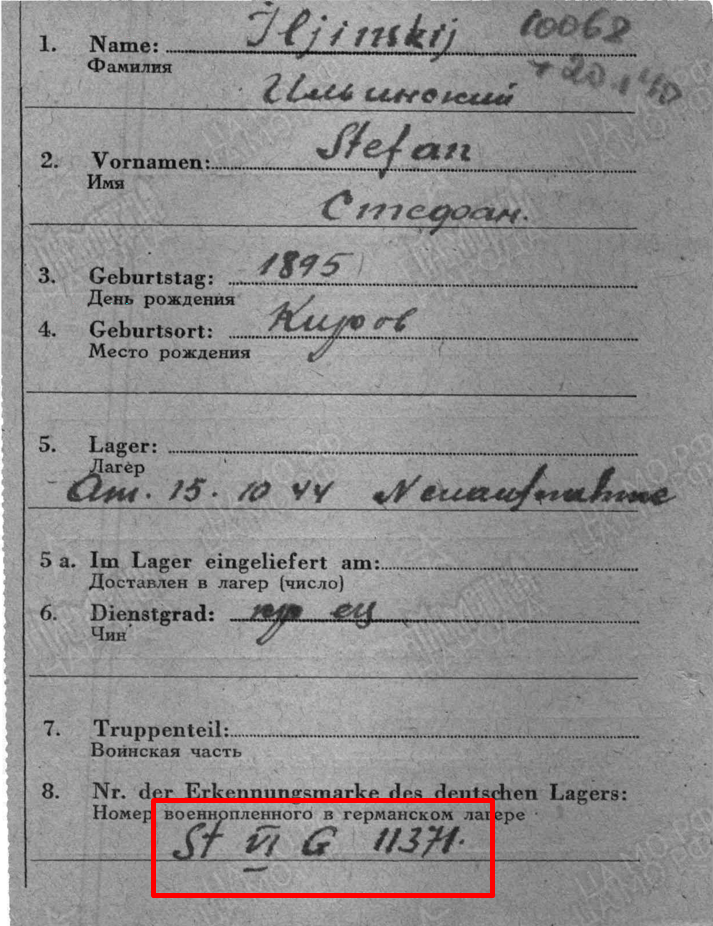 1. Name: Iljinskij 10062
Фамилия
Ильинский
2. Vornamen: Stefan
Имя
Стефан.
3. Geburtstag: 1895
День рождения
4. Geburtsort: Киров
Место рождения
5. Lager:
Лагер
Am. 15. 10 44 Neuaufnahme
5 a. Im Lager eingeliefert am:
Доставлен в лагер (число)
6. Dienstgrad:
Чин
7. Truppenteil:
Воинская часть
8. Nr. der Erkennungsmarke des deutschen Lagers:
Номер военнопленного в германском лагере
St VI G 11371.